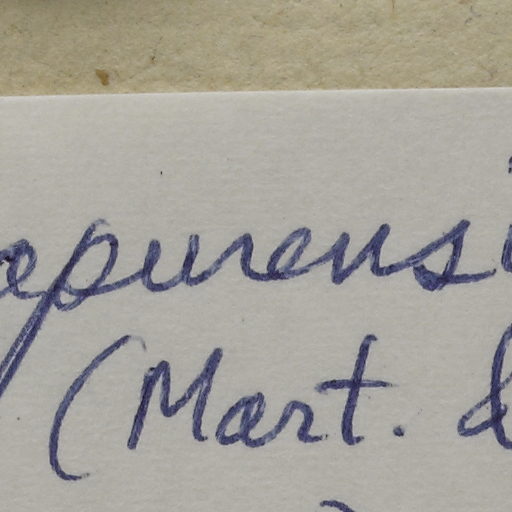 apurensi
(Mart. &